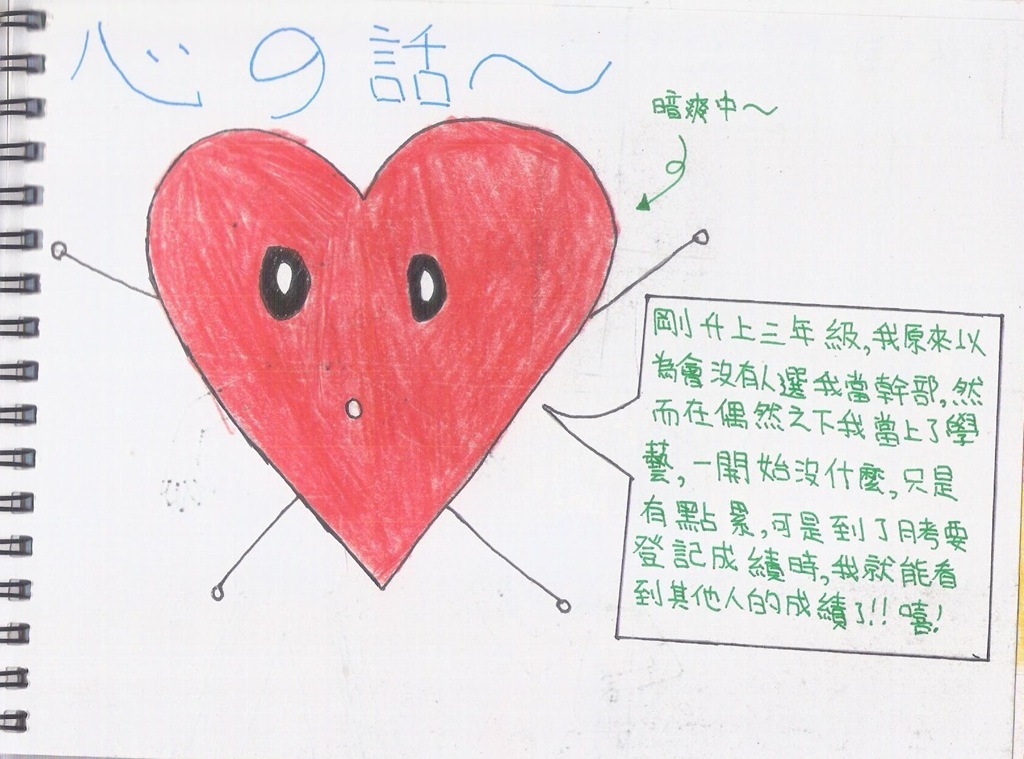 心の話～
暗爽中～
剛升上三年級,我原來以
為會沒有人選我當幹部,然
而在偶然之下我當上了學
藝,一開始沒什麼,只是
有點累,可是到了月考要
登記成績時,我就能看
到其他人的成績了!!嘻!